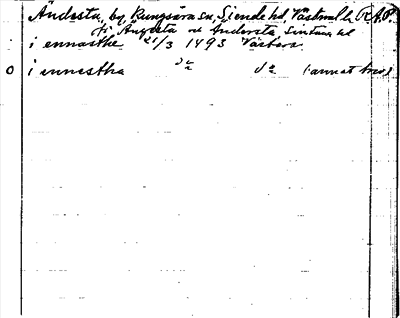 Andesta, by, Kungsåra sn, Siende hd, Västmanl. R.A.P.
fr. Ängesta och Andersta, Simtuna hd
i ennasthe 21/3 1493 Västerås
O i ennestha d:o d:o 1 annat brev